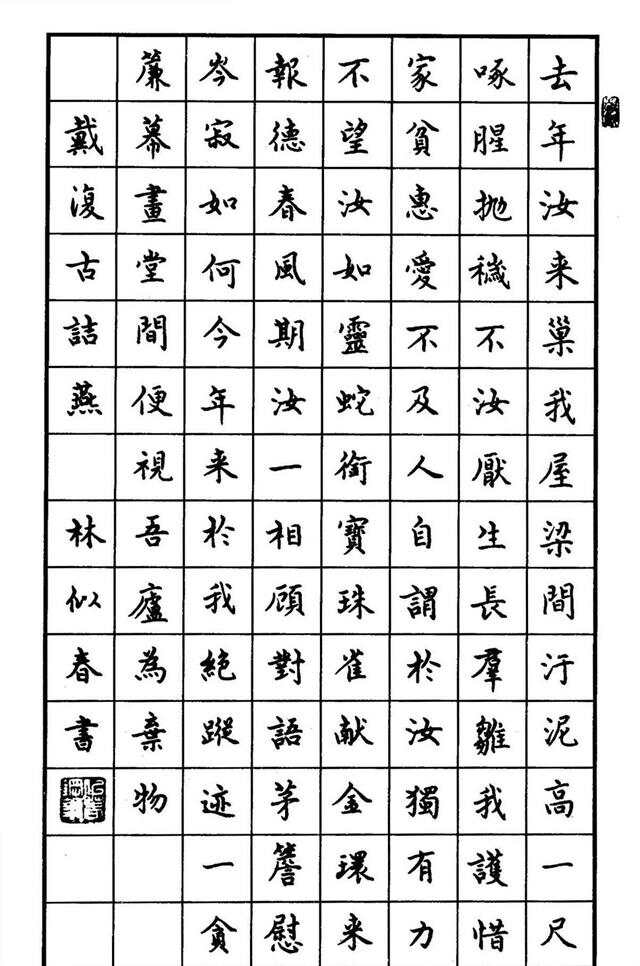 去年汝来巢我屋梁間汙泥高一尺
啄腥抛穢不汝厭生長羣雛我護惜
家貧惠愛不及人自謂於汝獨有力
不望汝如靈蛇銜寶珠雀献金環来
報德春風期汝一相顧對語茅簷慰
岑寂如何今年来於我絕蹤迹一貪
簾幕畫堂間便視吾廬為棄物
戴復古詰燕 林似春書